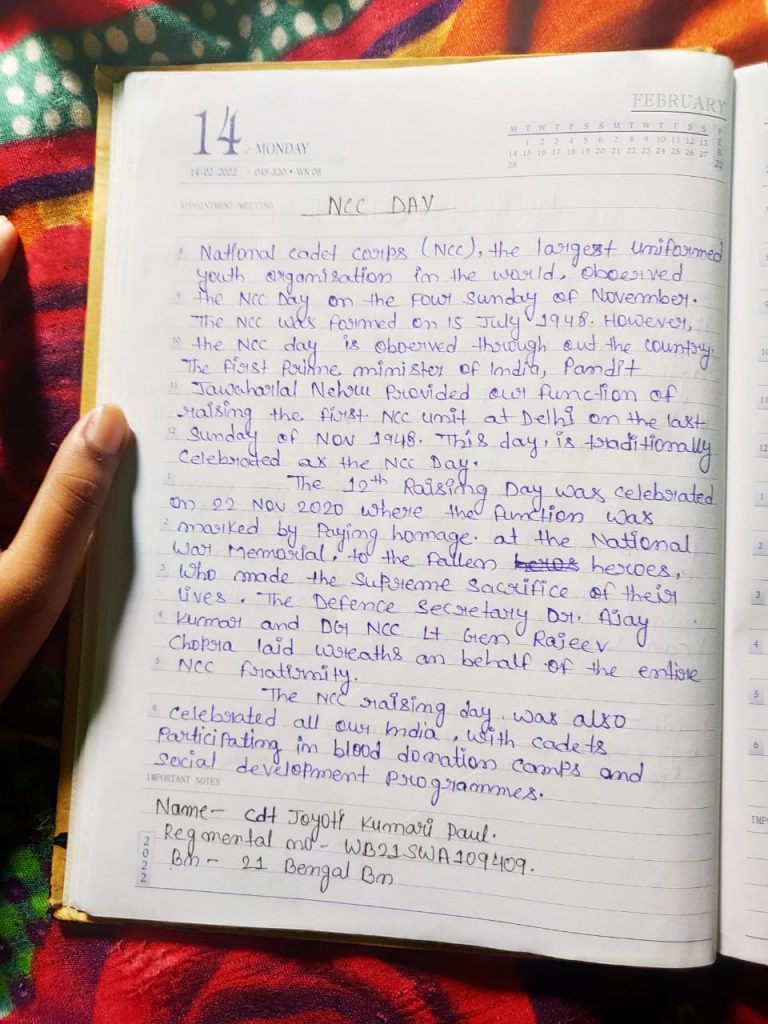 FEBRUARY
14 MONDAY
M T W T F S S M T W T F S S
1 2 3 4 5 6 7 8 9 10 11 12 13
14 15 16 17 18 19 20 21 22 23 24 25 26 27
28
FEB
22
14-02-2022 045-320 • WK 08
APPOINTMENT/MEETING
NCC DAY
National cadet corps (NCC), the largest uniformed
youth organisation in the world. observed
9 the NCC Day on the Four Sunday of November.
The NCC was formed on 15 July 1948. However,
10 the NCC day is observed through out the country.
The first Prime minister of India, Pandit
11 Jawaharlal Nehru Provided our function of
raising the first NCC unit at Delhi on the last
12 Sunday of NOV 1948. This day, is traditionally
celebrated as the NCC Day.
1 The 12th Raising Day was celebrated
on 22 NOV 2020 where the function was
2 marked by Paying homage. at the National
War Memorial, to the fallen heros heroes,
3 who made the supreme sacrifice of their
lives. The Defence Secretary Dr. Ajay
4 Kumar and DG NCC Lt Gen Rajeev
Chopra laid wreaths on behalf of the entire
5 NCC fratirnity.
The NCC raising day was also
6 celebrated all our India, with cadets
Participating in blood donation camps and
social development programmes.
IMPORTANT NOTES
Name- cdt Joyoti Kumari Paul.
Regmental no- WB21SWA109409.
Bn- 21 Bengal Bn
2022